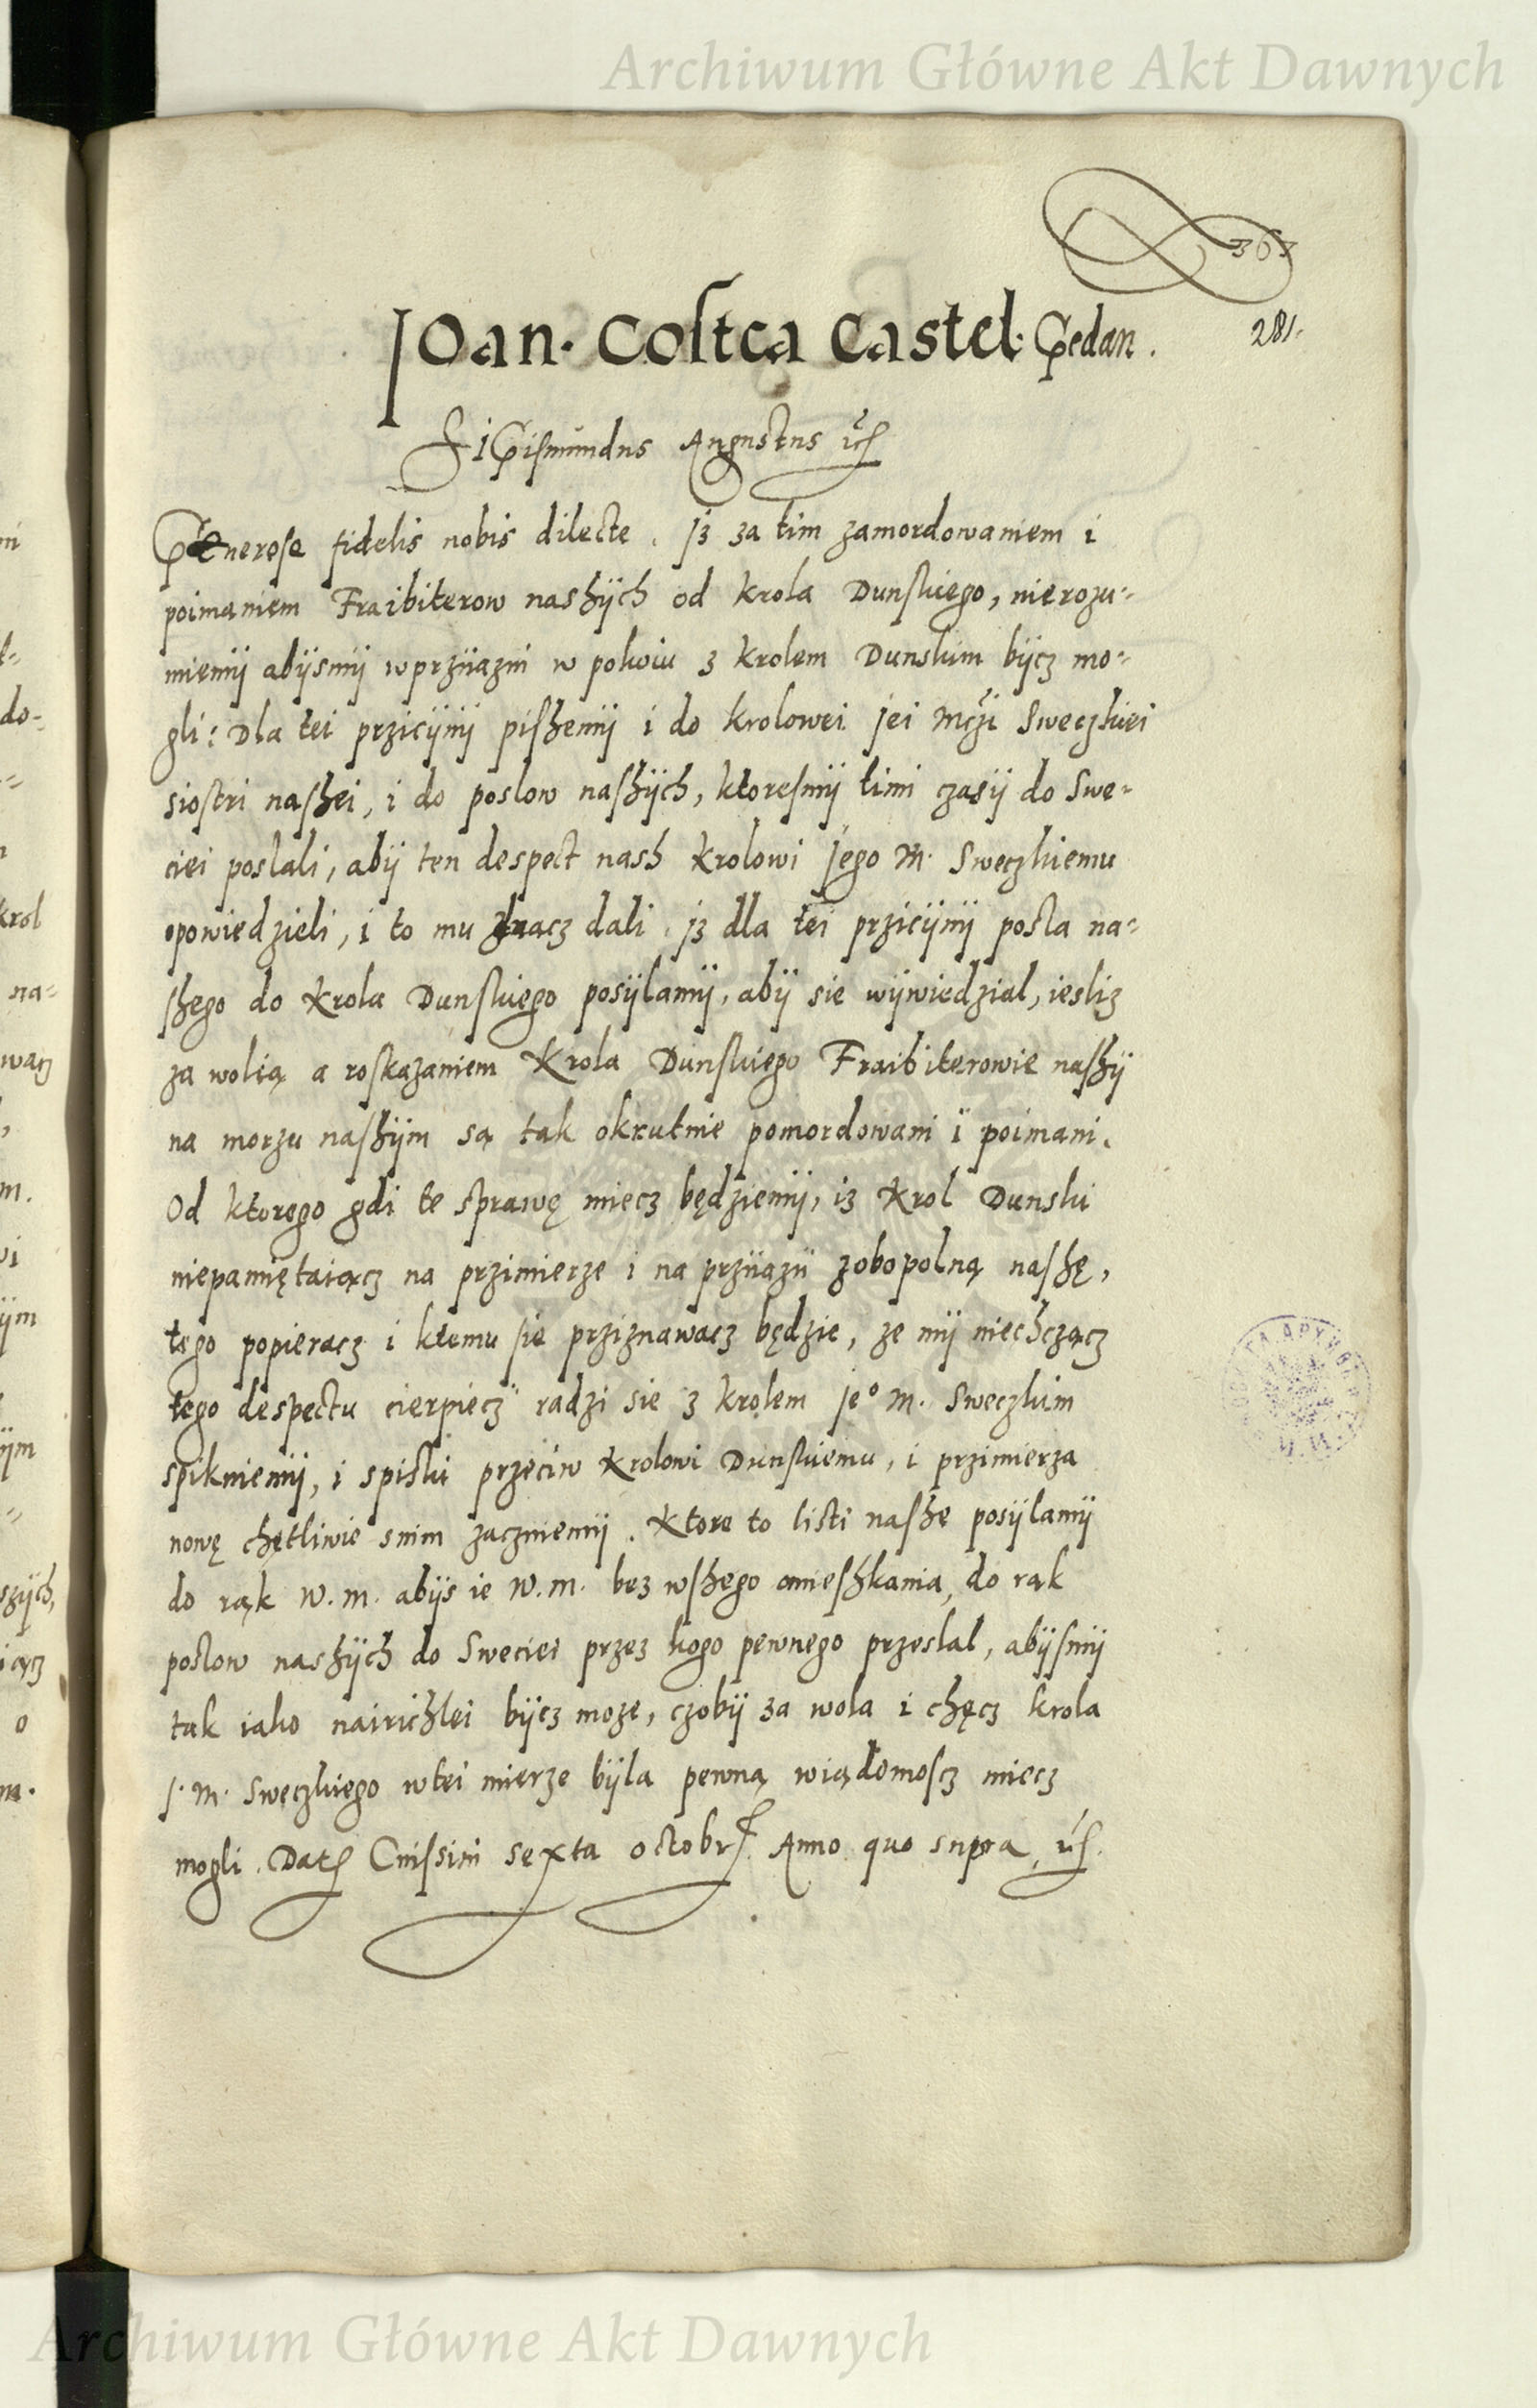 Archiwum Główne Akt Dawnych
363
Joan. Costca Castel. Gedan.
281.
Sigismundus Augustus etc
Generose fidelis nobis dilecte. Jz za tim zamordowaniem i
poimaniem Fraibiterow naszÿch od krola Dunskiego, nierozu=
miemÿ abÿsmÿ w przÿiazni w pokoiu z krolem Dunskim bÿcz mo=
gli: Dla tei przicÿnÿ piszemÿ i do krolowei Jei Mczi Sweczkiei
siostri naszei, i do poslow naszÿch, ktoresmÿ timi czasÿ do Swe=
ciei poslali, abÿ ten despect nash Krolowi Jego M. Sweczkiemu
opowiedzieli, i to mu znacz dali. jz dla tei przicÿnÿ posla na=
szego do Krola Dunskiego posÿlamÿ, abÿ sie wÿwiedzial, iesliz
za wolią a roskazaniem Krola Dunskiego Fraibiterowie naszÿ
na morzu naszÿm są tak okrutnie pomordowani i poimani.
Od ktorego gdi te sprawę miecz będziemÿ, iz Krol Dunski
niepamiętaiącz na przimierze i na przÿiazń zobopolną naszę,
tego popieracz i ktemu sie prziznawacz będzie, ze mÿ niechczącz
tego despectu cierpiecz radzi sie z krolem Je° M. Sweczkim
spikniemÿ, i spiski przeciw Krolowi Dunskiemu, i przimierza
nowę chętliwie snim zaczniemÿ. Ktore to listi nasze posÿlamÿ
do rąk W. M. abÿs ie W. M. bez wszego omieszkania do rąk
poslow naszÿch do Sweciei przez kogo pewnego przeslal, abÿsmÿ
tak iako nairichlei bÿcz moze, czobÿ za wola i chęcz krola
J. M. Sweczkiego wtei mierze bÿla pewną wiądomoscz miecz
mogli. Dat. Cnissini sexta octobr. Anno quo supra etc.
Archiwum Główne Akt Dawnych